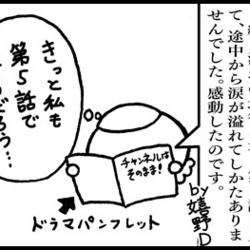 て、途中から涙が溢れてしかたありま
せんでした。感動したのです。
by嬉野D
きっと私も
第5話で
だろう…
チャンネルは
そのまま!
ドラマパンフレット